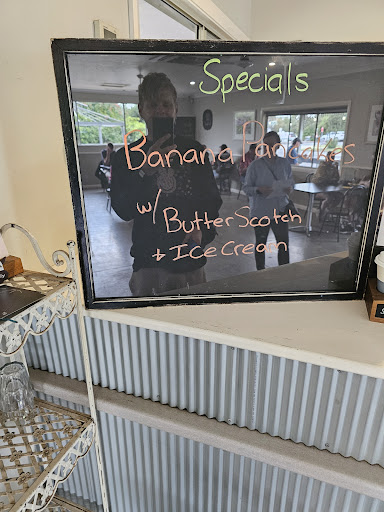 Specials
Banana Pancakes
w/ Butter Scotch
+ Ice Cream